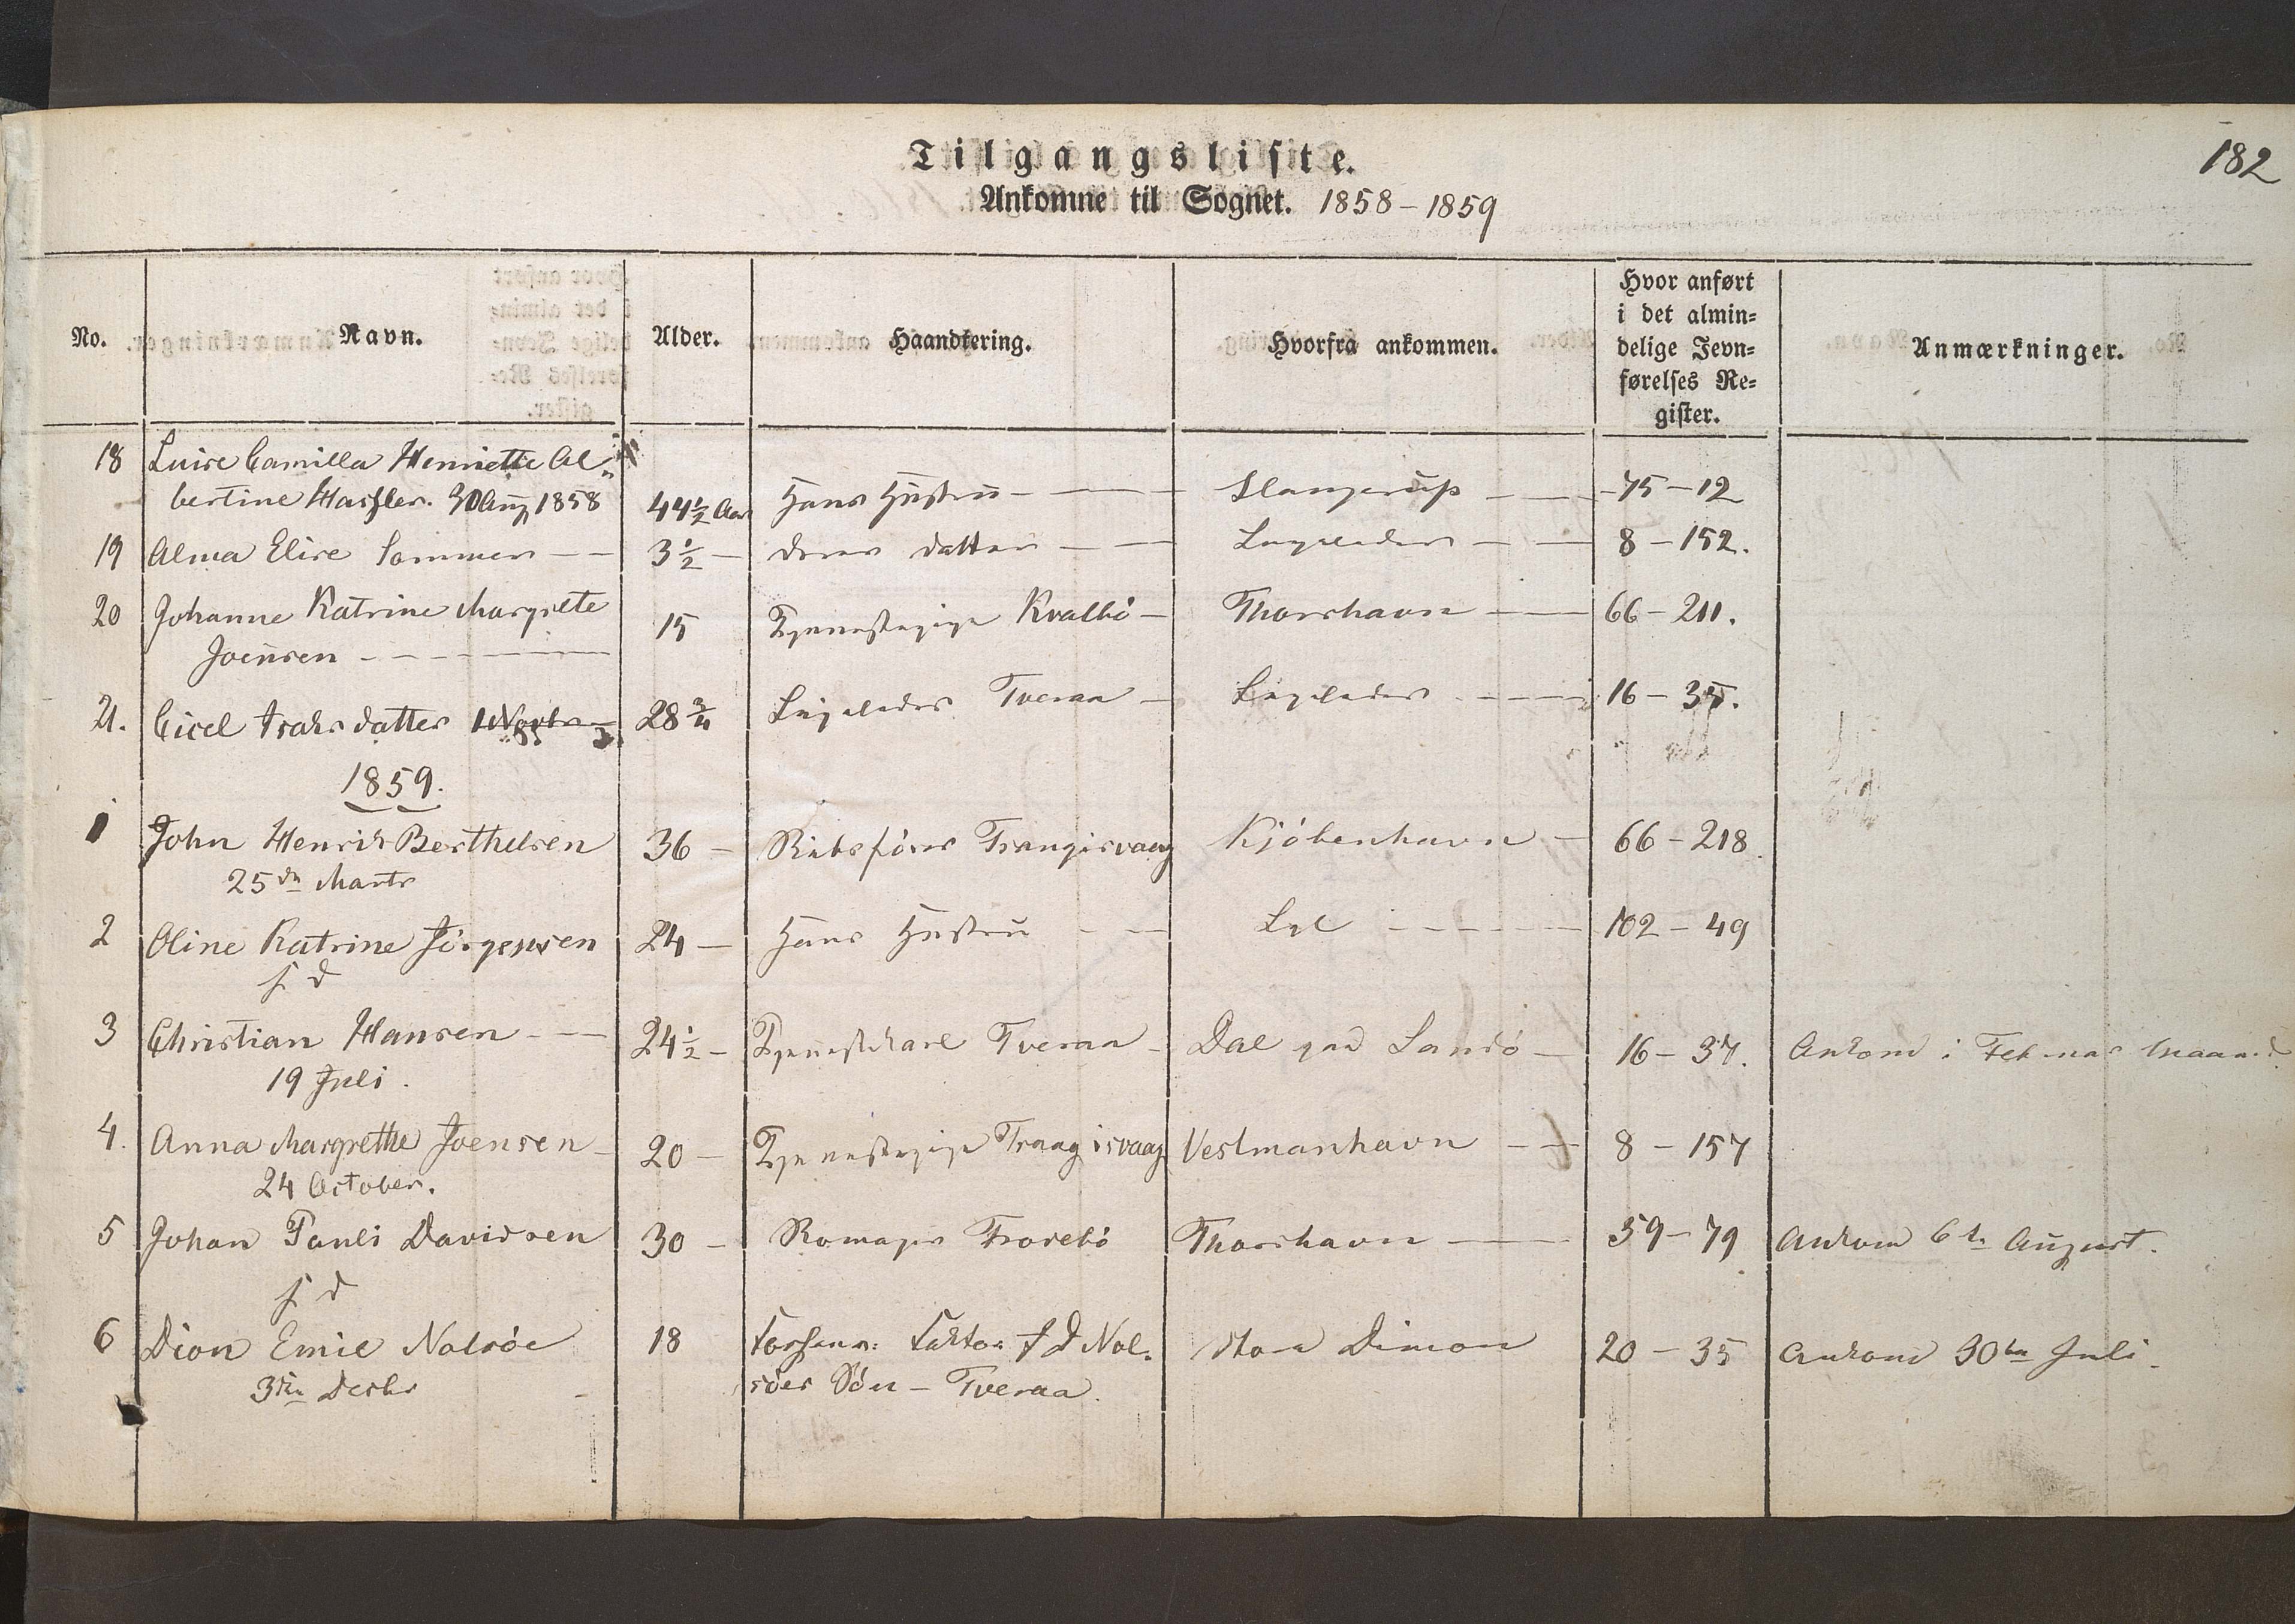 182
Tilgangsliste.
Ankomne til Sognet. 1858-1859
No. Navn. Alder. Haandtering. Hvorfra ankommen. Hvor anført i det almin= delige Jevn= førelses Re= gister. Anmærkninger.
18 Luise Camilla Henriette Al=
bertine 30 Aug 1858 44½ Aar Hans Hustru Slangerup 75-12
19 Alma Elise Sommer 3½ deres datter Ligeledes 8-152.
20 Johanne Katrine Margrete 15 Tjenestepige Kvalbö Thorshavn 66-211.
Joensen
21. Cicel Isaksdatter 28¾ Ligeledes Tveraa Ligeledes 16-35.
1859.
1 John Henrik Berthelsen 36 Trangisvaag Kjöbenhavn 66-218.
25de Marts
2 Oline Katrine Jörgensen 24 Hans Hustru 102-49
s d
3 Christian Hansen 24½ Tjenestekarl Tveraa Dal paa Sandö 16-37. Ankom i Februar Maaned
19 Juli.
4. Anna Margrethe Joensen 20 Tjenestepige Trangisvaag Vestmanhavn 8-157
24 October.
5 Johan Pauli Davidsen 30 Frodebö Thorshavn 59-79 Ankom 6te August.
s d
6 Dion Emil Nolsöe 18 Faktor J D Nol= Stora Dimon 20-35 Ankom 30te Juli.
söes Sön - Tveraa.
3die Decbr